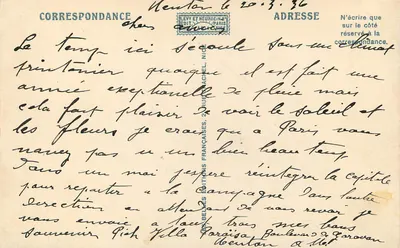 Menton le 20.3.36
CORRESPONDANCE
LEVY ET NEURDEIN
PARIS
ADRESSE
N'écrire que
sur le côté
réservé à la
correspondance.
chers
Le temp ici s'ecoule sous un climat
printonier quoique il est fait une
année exceptionelle de pluie mais
cela fait plaisir de voir le soleil et
les fleurs je crois que a Paris vous
navez pas u un bien beau temp
Dans un mai j'espere reintegrer la capitale
pour repartir a la campagne dans l'autre
direction en attendant de vous revoir je
vous envoie a tout trois mes vrais
Souvenir Villa Boulevard de Garavan
Menton